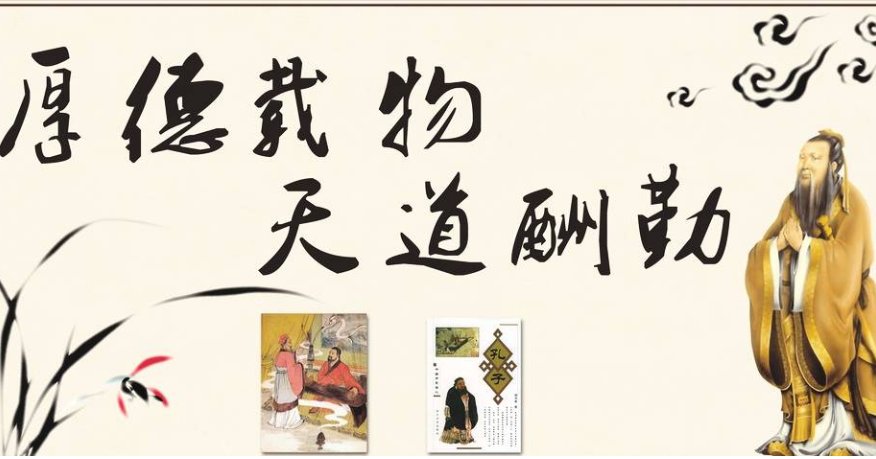 厚德载物
天道酬勤
孔子